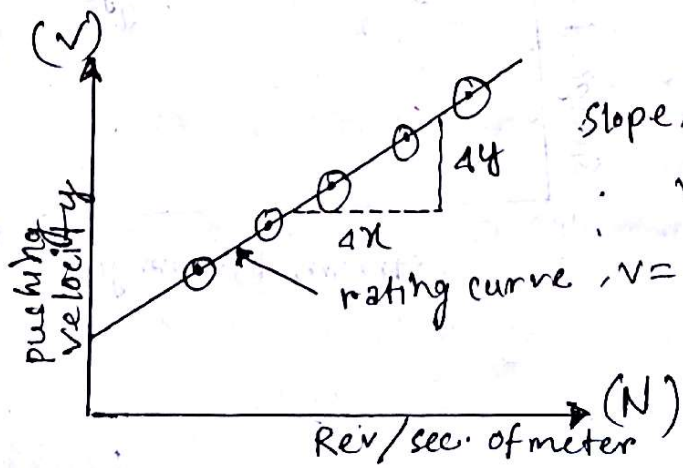 (v)
pushing
velocity
slope.
Δy
Δx
rating curve , v =
(N)
Rev/sec. of meter